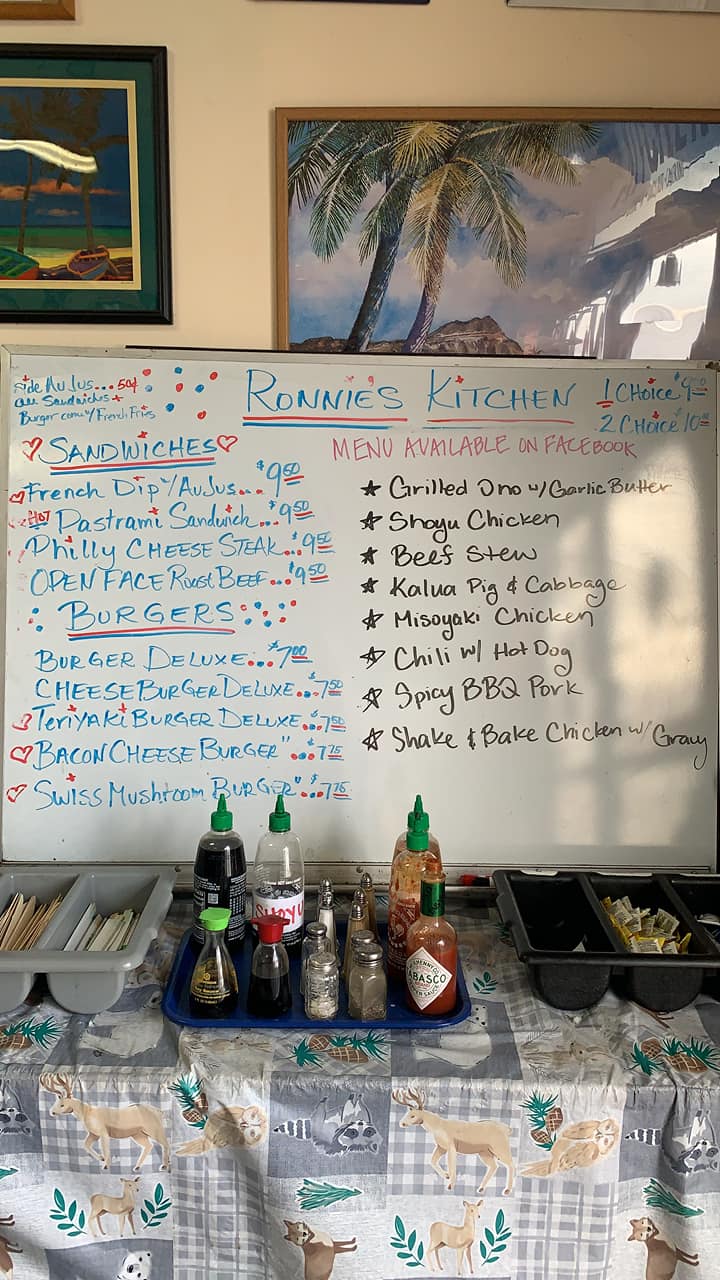 Side Au Jus... 50¢
All Sandwiches +
Burger come w/ French Fries
RONNIE'S KITCHEN
1 CHOICE $9.00
2 CHOICE $10.00
SANDWICHES
MENU AVAILABLE ON FACEBOOK
French Dip w/ Au Jus... $9.50
HOT Pastrami Sandwich... $9.50
Philly CHEESE STEAK... $9.50
OPEN FACE Roast BEEF... $9.50
BURGERS
BURGER DELUXE... $7.00
CHEESE BURGER DELUXE... $7.50
Teriyaki BURGER DELUXE... $7.50
BACON CHEESE BURGER "... $7.75
SWISS MUSHROOM BURGER "... $7.75
Grilled Ono w/ Garlic Butter
Shoyu Chicken
Beef Stew
Kalua Pig & Cabbage
Misoyaki Chicken
Chili w/ Hot Dog
Spicy BBQ Pork
Shake & Bake Chicken w/ Gravy
SHOYU
TABASCO